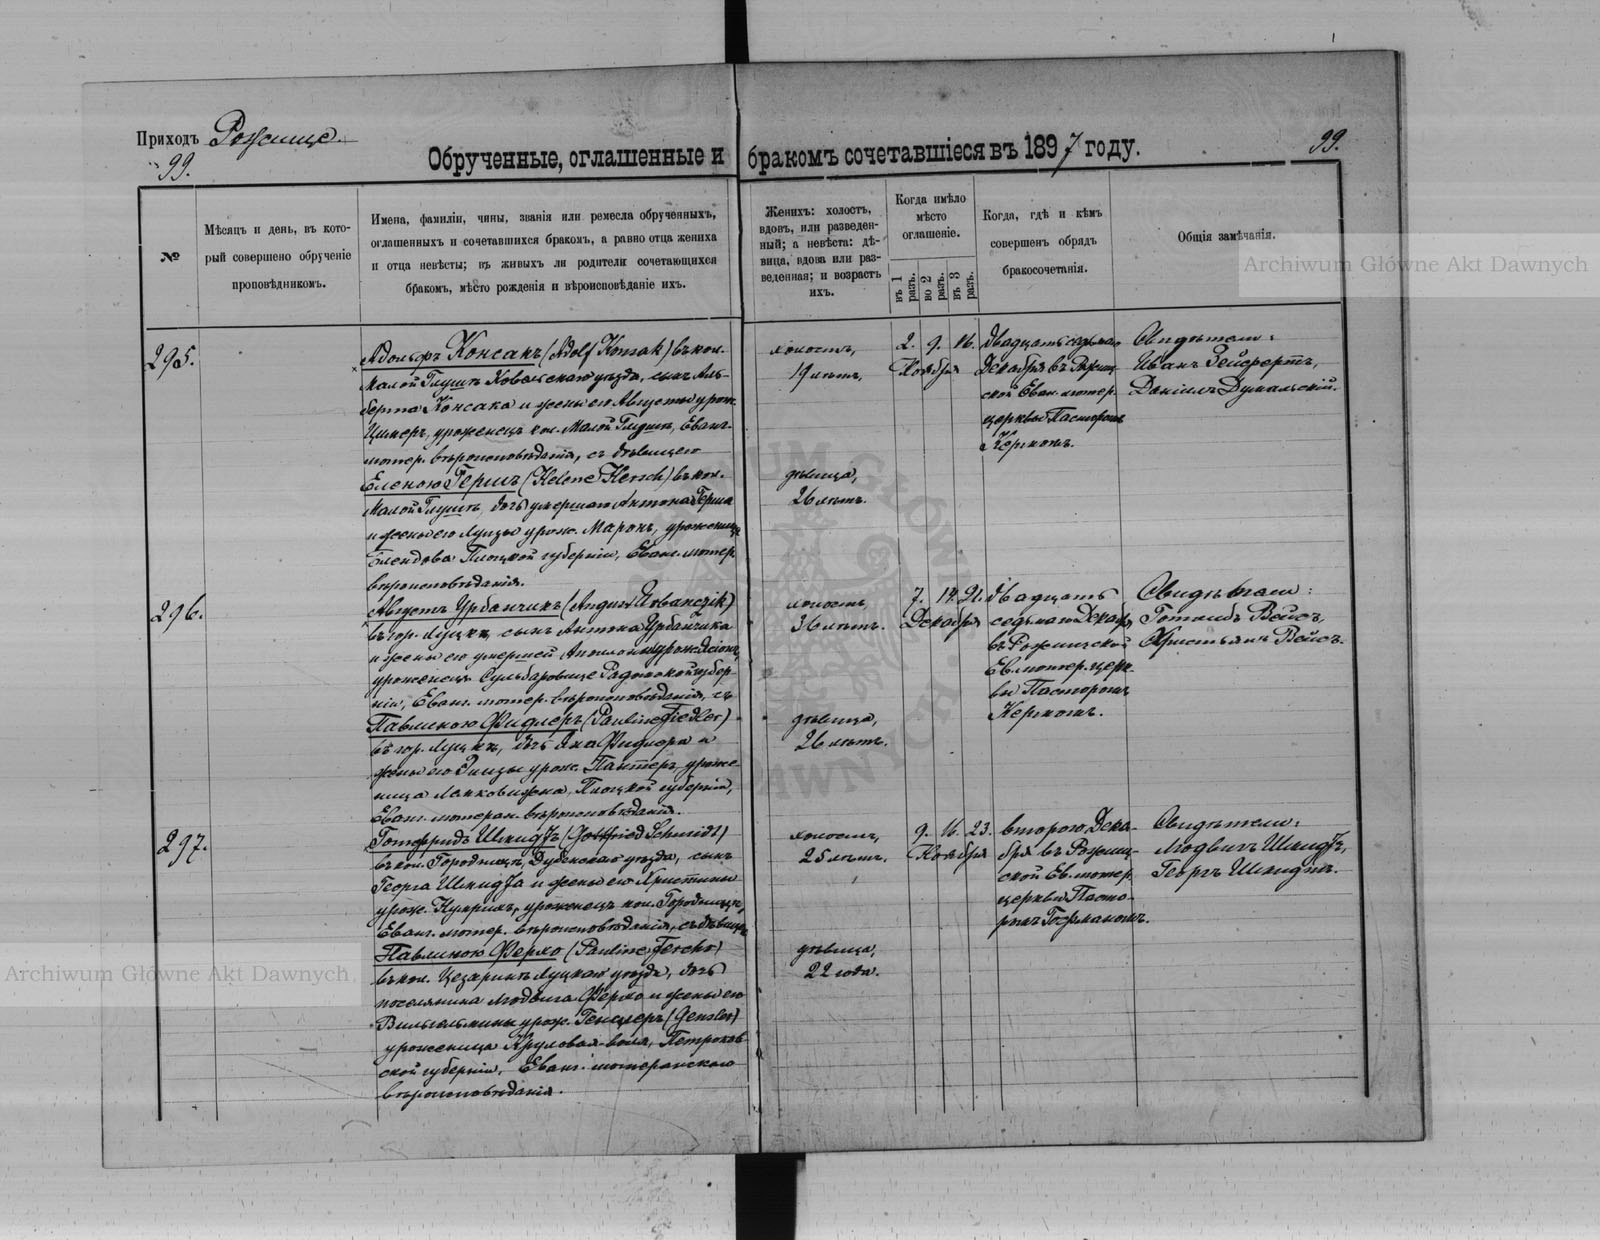 Приходъ Рожище.
99.
99.
Обрученные, оглашенные и бракомъ сочетавшіеся въ 1897 году.
№
Мѣсяцъ и день, въ кото-
рый совершено обрученіе
проповѣдникомъ.
Имена, фамиліи, чины, званія или ремесла обрученныхъ,
оглашенныхъ и сочетавшихся бракомъ, а равно отца жениха
и отца невѣсты; въ живыхъ ли родители сочетающихся
бракомъ, мѣсто рожденія и вѣроисповѣданіе ихъ.
Женихъ: холостъ,
вдовъ, или разведен-
ный; а невѣста: дѣ-
вица, вдова или раз-
веденная; и возрастъ
ихъ.
Когда имѣло
мѣсто
оглашеніе.
въ 1 разъ.
во 2 разъ.
въ 3 разъ.
Когда, гдѣ и кѣмъ
совершенъ обрядъ
бракосочетанія.
Общія замѣчанія.
295.
Адольфъ Консакъ (Adolf Konsak) въ кол.
Малой Глушѣ Ковельскаго уѣзда, сынъ Аль-
берта Консака и жены его Августы урож.
Цимеръ, уроженецъ кол. Малой Глушѣ, Еванг.
лютер. вѣроисповѣданія, съ дѣвицею
Еленою Гершъ (Helene Hersch) въ кол.
Малой Глушѣ, дочь умершаго Антона Герша
и жены его Луизы урож. Маронъ, уроженица
Блендова Плоцкой губерніи, Еванг. лютер.
вѣроисповѣданія.
холостъ,
19 лѣтъ,
дѣвица,
26 лѣтъ.
2. 9. 16.
Ноября
Двадцать седьмаго
Декабря въ Рожищ-
ской Еван. лютер.
церкви Пасторомъ
Кёркомъ.
Свидѣтели:
Иванъ Зейфертъ,
Даніилъ Думальскій.
296.
Августъ Урбанчикъ (August Urbanczik)
въ гор. Луцкѣ, сынъ Антона Урбанчика
и жены его умершей урож.
уроженецъ Радомской губер-
ніи, Еванг. лютер. вѣроисповѣданія, съ
Павлиною Фидлеръ (Pauline Fiedler)
въ гор. Луцкѣ, дочь Яна Фидлера и
жены его Элизы урож. Пантеръ, уроже-
ница Плоцкой губерніи,
Еванг. лютеран. вѣроисповѣданія.
холостъ,
36 лѣтъ.
дѣвица,
26 лѣтъ.
7. 14. 21.
Декабря
двадцать
седьмаго Декабря
въ Рожищской
Ев. лютер. церк-
ви Пасторомъ
Керкомъ.
Свидѣтели:
Готлибъ Вейсъ,
Христьянъ Вейсъ.
297.
Готфридъ Шмидтъ (Gottfried Schmidt)
въ кол. Городницѣ, Дубенскаго уѣзда, сынъ
Георга Шмидта и жены его Христины
урож. уроженецъ кол. Городницы,
Еванг. лютер. вѣроисповѣданія, съ дѣвицею
Павлиною Ферхо (Pauline Fercho)
въ кол. Цезаринъ Луцкаго уѣзда, дочь
поселянина Людвига Ферхо и жены его
Вильгельмины урож. Генцлеръ (Genzler)
уроженица Круловая-воля, Петроков-
ской губерніи, Еванг. лютеранскаго
вѣроисповѣданія.
холостъ,
25 лѣтъ.
дѣвица,
22 года.
9. 16. 23.
Ноября
втораго Дека-
бря въ Рожищ-
ской Ев. лютер.
церкви Пасто-
ромъ Гофманомъ.
Свидѣтели:
Людвигъ Шмидтъ,
Георгъ Шмидтъ.
Archiwum Główne Akt Dawnych
Archiwum Główne Akt Dawnych